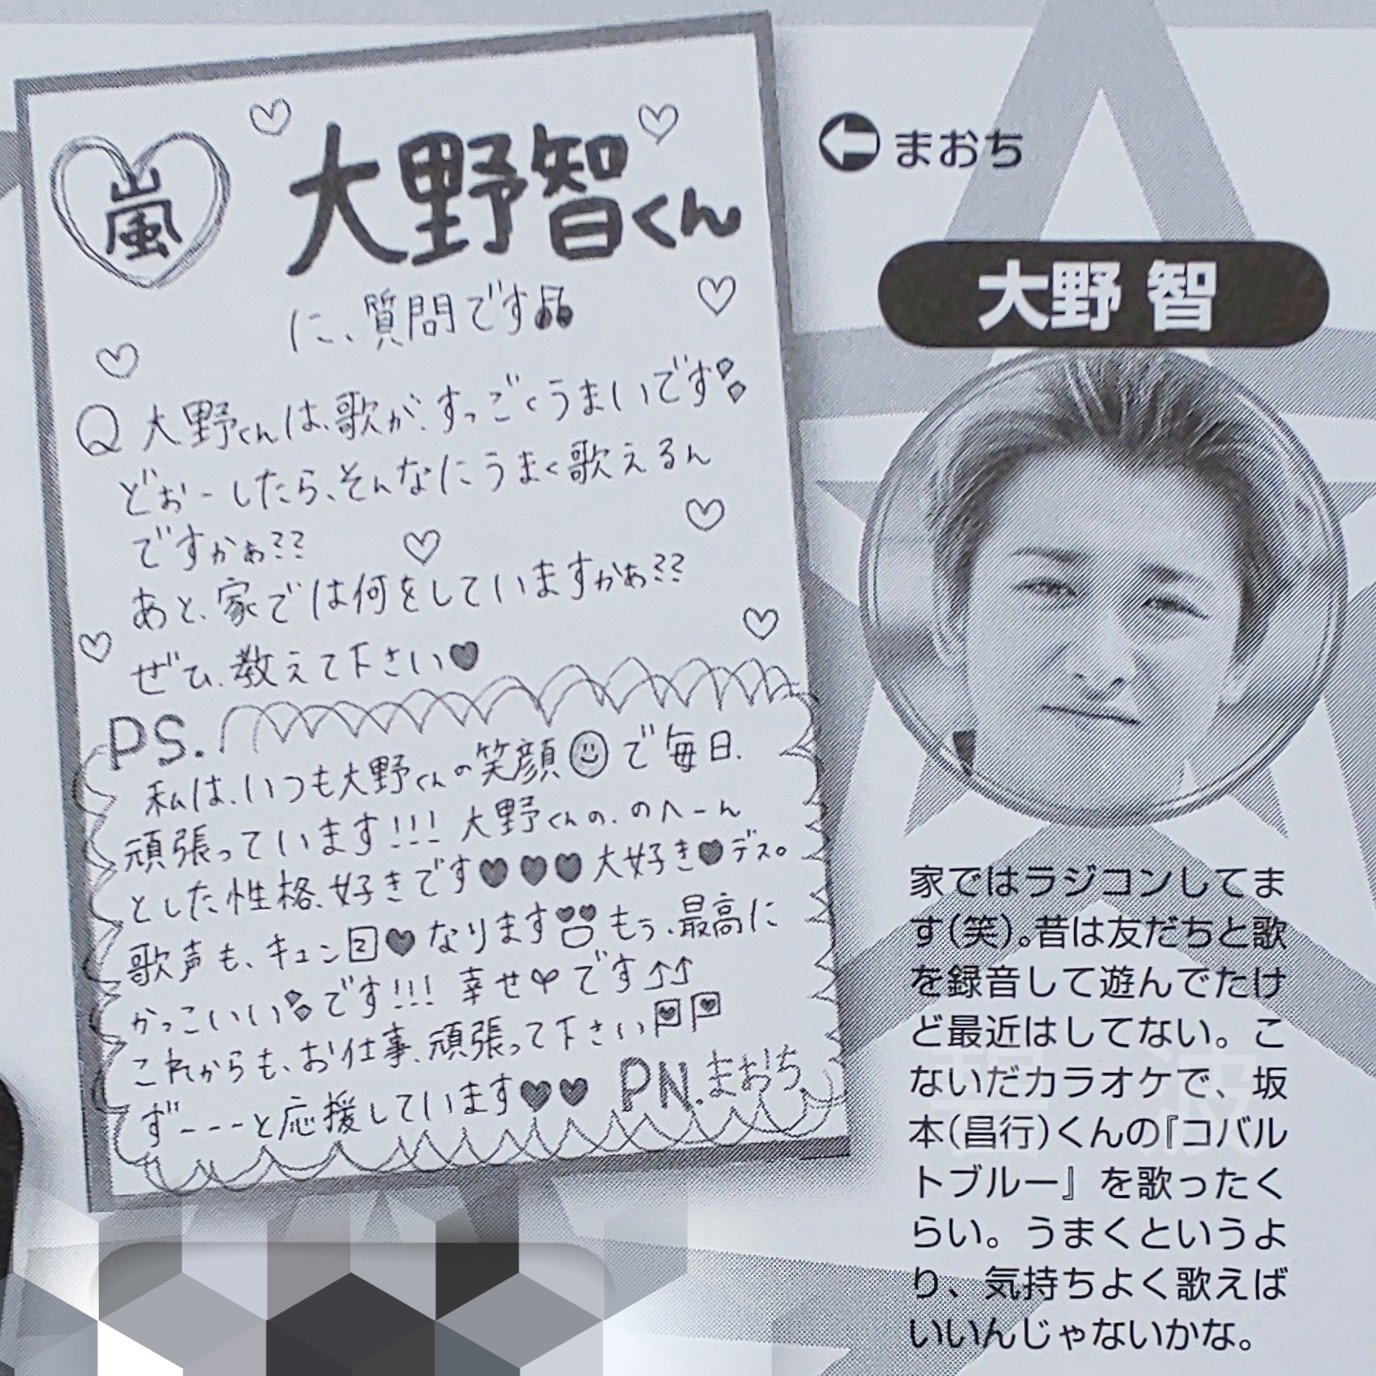 嵐
大野智くん
に、質問です
Q 大野くんは、歌が、すっごくうまいです
どぉーしたら、そんなにうまく歌えるん
ですかぁ??
あと、家では何をしていますかぁ??
ぜひ、教えて下さい♥
PS.
私は、いつも大野くんの笑顔で毎日、
頑張っています!!! 大野くんの、のへーん
とした性格、好きです♥♥♥大好き♥デス。
歌声も、キュン♥なります もぅ、最高に
かっこいいです!!! 幸せです↑↑
これからも、お仕事、頑張って下さい
ず---と応援しています♥♥ PN.まおち
まおち
大野 智
家ではラジコンしてま
す(笑)。昔は友だちと歌
を録音して遊んでたけ
ど最近はしてない。こ
ないだカラオケで、坂
本(昌行)くんの『コバル
トブルー』を歌ったく
らい。うまくというよ
り、気持ちよく歌えば
いいんじゃないかな。